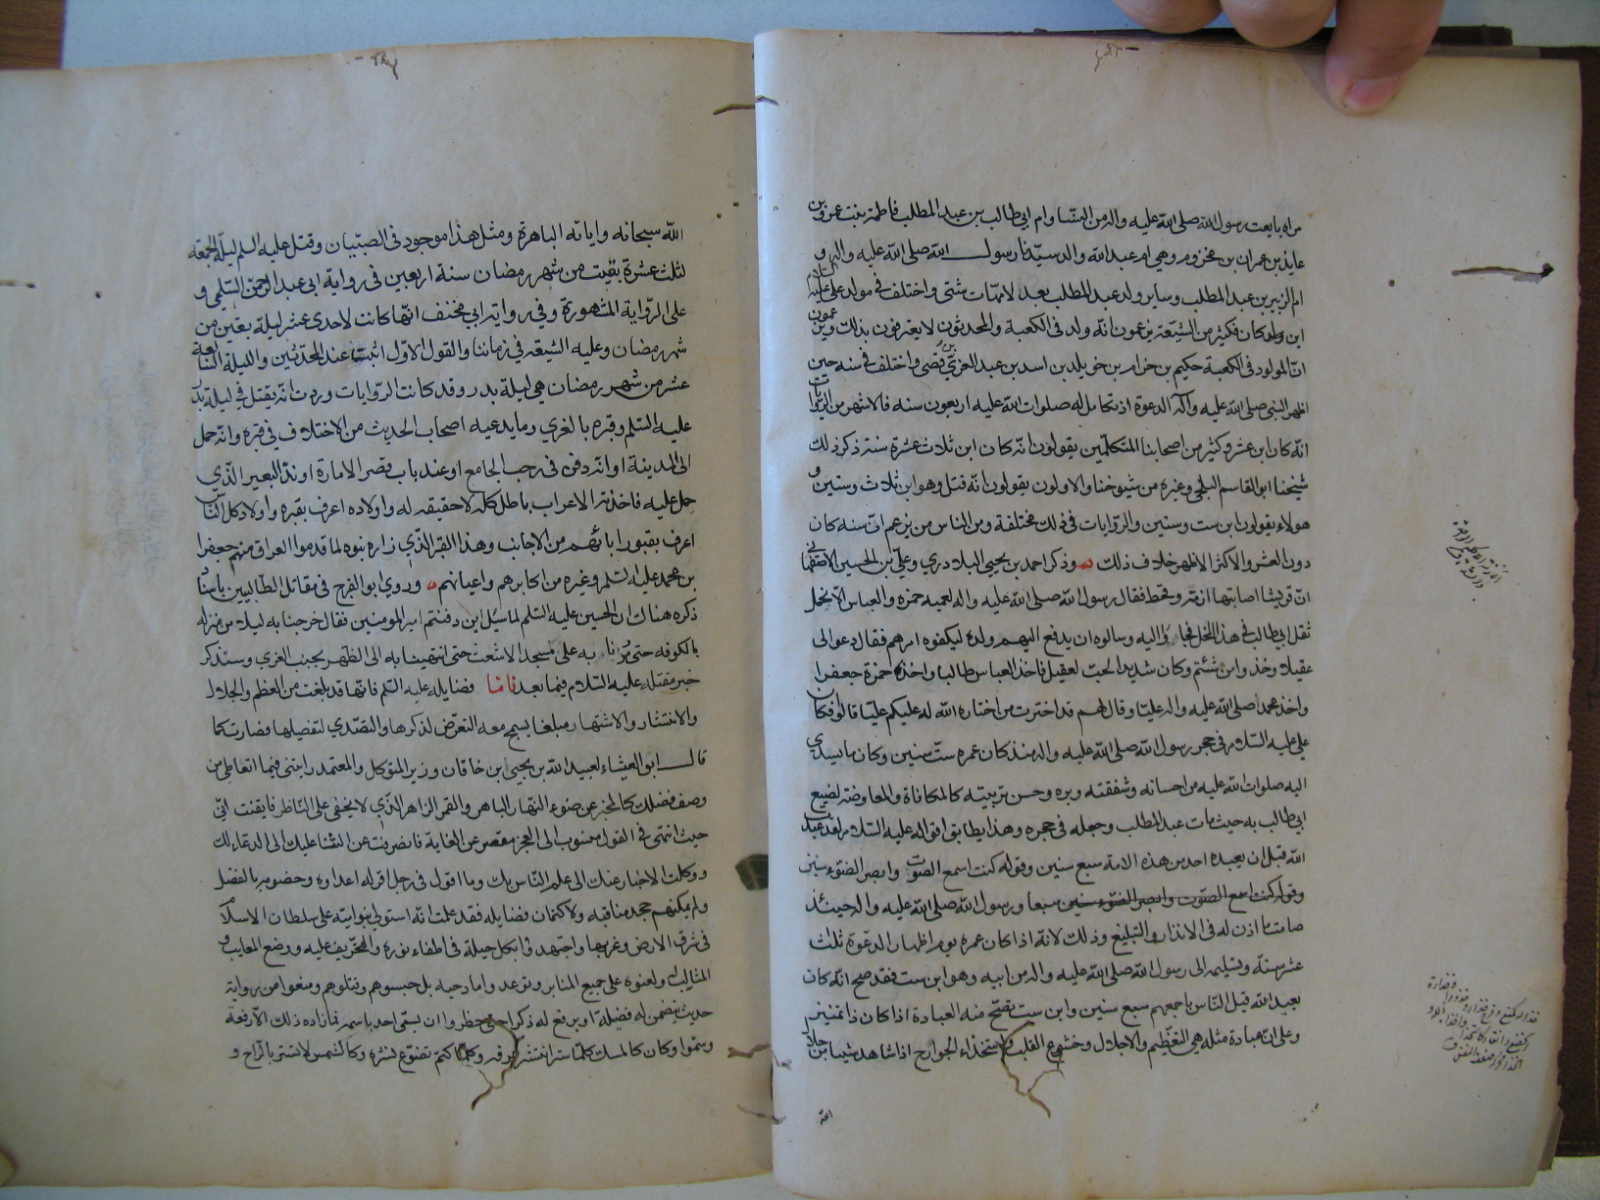 مراة بايعت رسول الله صلى الله عليه واله من النسا وام ابى طالب بن عبد المطلب فاطمة بنت عمرو بن
عايذ بن عمران بن مخزوم وهي ام عبد الله والد سيدنا رسول الله صلى الله عليه واله و
ام الزبير بن عبد المطلب وساير ولد عبد المطلب بعد لامهات شتى واختلف في مولد علي عليه السلام
اين كان فكثير من الشيعة يزعمون انه ولد في الكعبة والمحدثون لا يعترفون بذلك ويزعمون
ان المولود في الكعبة حكيم بن حزام بن خويلد بن اسد بن عبد العزى بن قصي واختلف في سنه حين
اظهر النبي صلى الله عليه وآله الدعوة اذ تكامل له صلوات الله عليه اربعون سنه فالاشهر من الروايات
انه كان ابن عشر وكثير من اصحابنا المتكلمين يقولون انه كان ابن ثلاث عشرة سنة ذكر ذلك
شيخنا ابو القاسم البلخي وغيره من شيوخنا والاولون يقولون انه قتل وهو ابن ثلاث وستين و
هولاء يقولون ابن ست وستين والروايات في ذلك مختلفة ومن الناس من يزعم ان سنه كان
دون العشر والاكثر الاظهر خلاف ذلك وذكر احمد بن يحيى البلادري وعلي بن الحسين الاصفهاني
ان قريشا اصابتها ازمة وقحط فقال رسول الله صلى الله عليه واله لعميه حمزه والعباس الا نحمل
ثقل ابي طالب في هذا المحل فجاوا اليه وسالوه ان يدفع اليهم ولده ليكفوه امرهم فقال دعوا لي
عقيلا وخذوا من شئتم وكان شديد الحب لعقيل فاخذ العباس طالبا واخذ حمزة جعفرا
واخذ محمد صلى الله عليه واله عليا وقال لهم قد اخترت من اختاره الله لي عليكم عليا قالوا فكان
علي عليه السلام في حجر رسول الله صلى الله عليه واله منذ كان عمره ست سنين وكان ما يسدي
اليه صلوات الله عليه من احسانه وشفقته وبره وحسن تربيته كالمكافاة والمعاوضة لصنيع
ابي طالب به حيث مات عبد المطلب وجعله في حجره وهذا يطابق اقواله عليه السلام لقد عبدت
الله قبل ان يعبده احد من هذه الامة سبع سنين وقوله كنت اسمع الصوت وابصر الضوء سنين
وقوله كنت اسمع الصوت وابصر الضوء سنين سبعا ورسول الله صلى الله عليه واله حينئذ
صامت ما اذن له في الانذار والتبليغ وذلك لانه اذا كان عمره يوم اظهار الدعوة ثلاث
عشر سنة وتسليمه الى رسول الله صلى الله عليه واله من ابيه وهو ابن ست فقد صح انه كان
يعبد الله قبل الناس باجمعهم سبع سنين وابن ست تصح منه العبادة اذا كان ذا تمييز
وعلى ان عبادة مثله هي التعظيم والاجلال وخشوع القلب واستخذاء الجوارح اذا شاهد شيئا من جلال
الله
الله سبحانه واياته الباهرة ومثل هذا موجود في الصبيان وقتل عليه السلم ليلة الجمعة
لثلث عشرة بقيت من شهر رمضان سنة اربعين في رواية ابي عبد الرحمن السلمي و
على الرواية المشهورة وفي رواية ابي مخنف انها كانت لاحدى عشر ليلة بقين من
شهر رمضان وعليه الشيعة في زماننا والقول الاول اثبت عند المحدثين والليلة السابعة
عشر من شهر رمضان هي ليلة بدر وقد كانت الروايات وردت انه يقتل في ليلة بدر
عليه السلم وقبره بالغري وما يدعيه اصحاب الحديث من الاختلاف في قبره وانه حمل
الى المدينة او انه دفن في رحب الجامع او عند باب قصر الامارة او ند البعير الذي
حمل عليه فاخذته الاعراب باطل كله لا حقيقه له واولاده اعرف بقبره واولاد كل الناس
اعرف بقبور ابائهم من الاجانب وهذا القبر الذي زاره بنوه لما قدموا العراق منهم جعفر
بن محمد عليه السلم وغيره من اكابرهم واعيانهم وروي ابو الفرج في مقاتل الطالبيين باسناد
ذكره هناك ان الحسين عليه السلم لما سئل اين دفنتم امير المومنين فقال خرجنا به ليلا من منزله
بالكوفه حتى مررنا به على مسجد الاشعث حتى انتهينا به الى الظهر بجنب الغري وسنذكر
خبر مقتله عليه السلام فيما بعد فاما فضايله عليه السلم فانها قد بلغت من العظم والجلال
والانتشار والاشتهار مبلغا يسمج معه التعرض لذكرها والتصدي لتفصيلها فصارت كما
قال ابو العيناء لعبيد الله بن يحيى بن خاقان وزير المتوكل والمعتمد رايتني فيما اتعاطى من
وصف فضلك كالمخبر عن ضوء النهار الباهر والقمر الزاهر الذي لا يخفى على الناظر فايقنت اني
حيث انتهى في القول منسوب الى العجز مقصر عن الغاية فانصرفت عن الثنا عليك الى الدعاء لك
ووكلت الاخبار عنك الى علم الناس بك وما اقول في رجل اقر له اعداوه وخصومه بالفضل
ولم يمكنهم جحد مناقبه ولا كتمان فضايله فقد علمت انه استولى بنو اميه على سلطان الاسلام
في شرق الارض وغربها واجتهدوا بكل حيلة في اطفاء نوره والتحريف عليه ووضع المعايب و
المثالب له ولعنوه على جميع المنابر وتوعدوا مادحيه بل حبسوهم وقتلوهم ومنعوا من رواية
حديث يتضمن له فضيلة او يرفع له ذكرا حتى حظروا ان يسمى احد باسمه فما زاده ذلك الا رفعة
وسموا وكان كالمسك كلما ستر انتشر عرفه وكلما كتم تضوع نشره وكالشمس لا تستر بالراح و